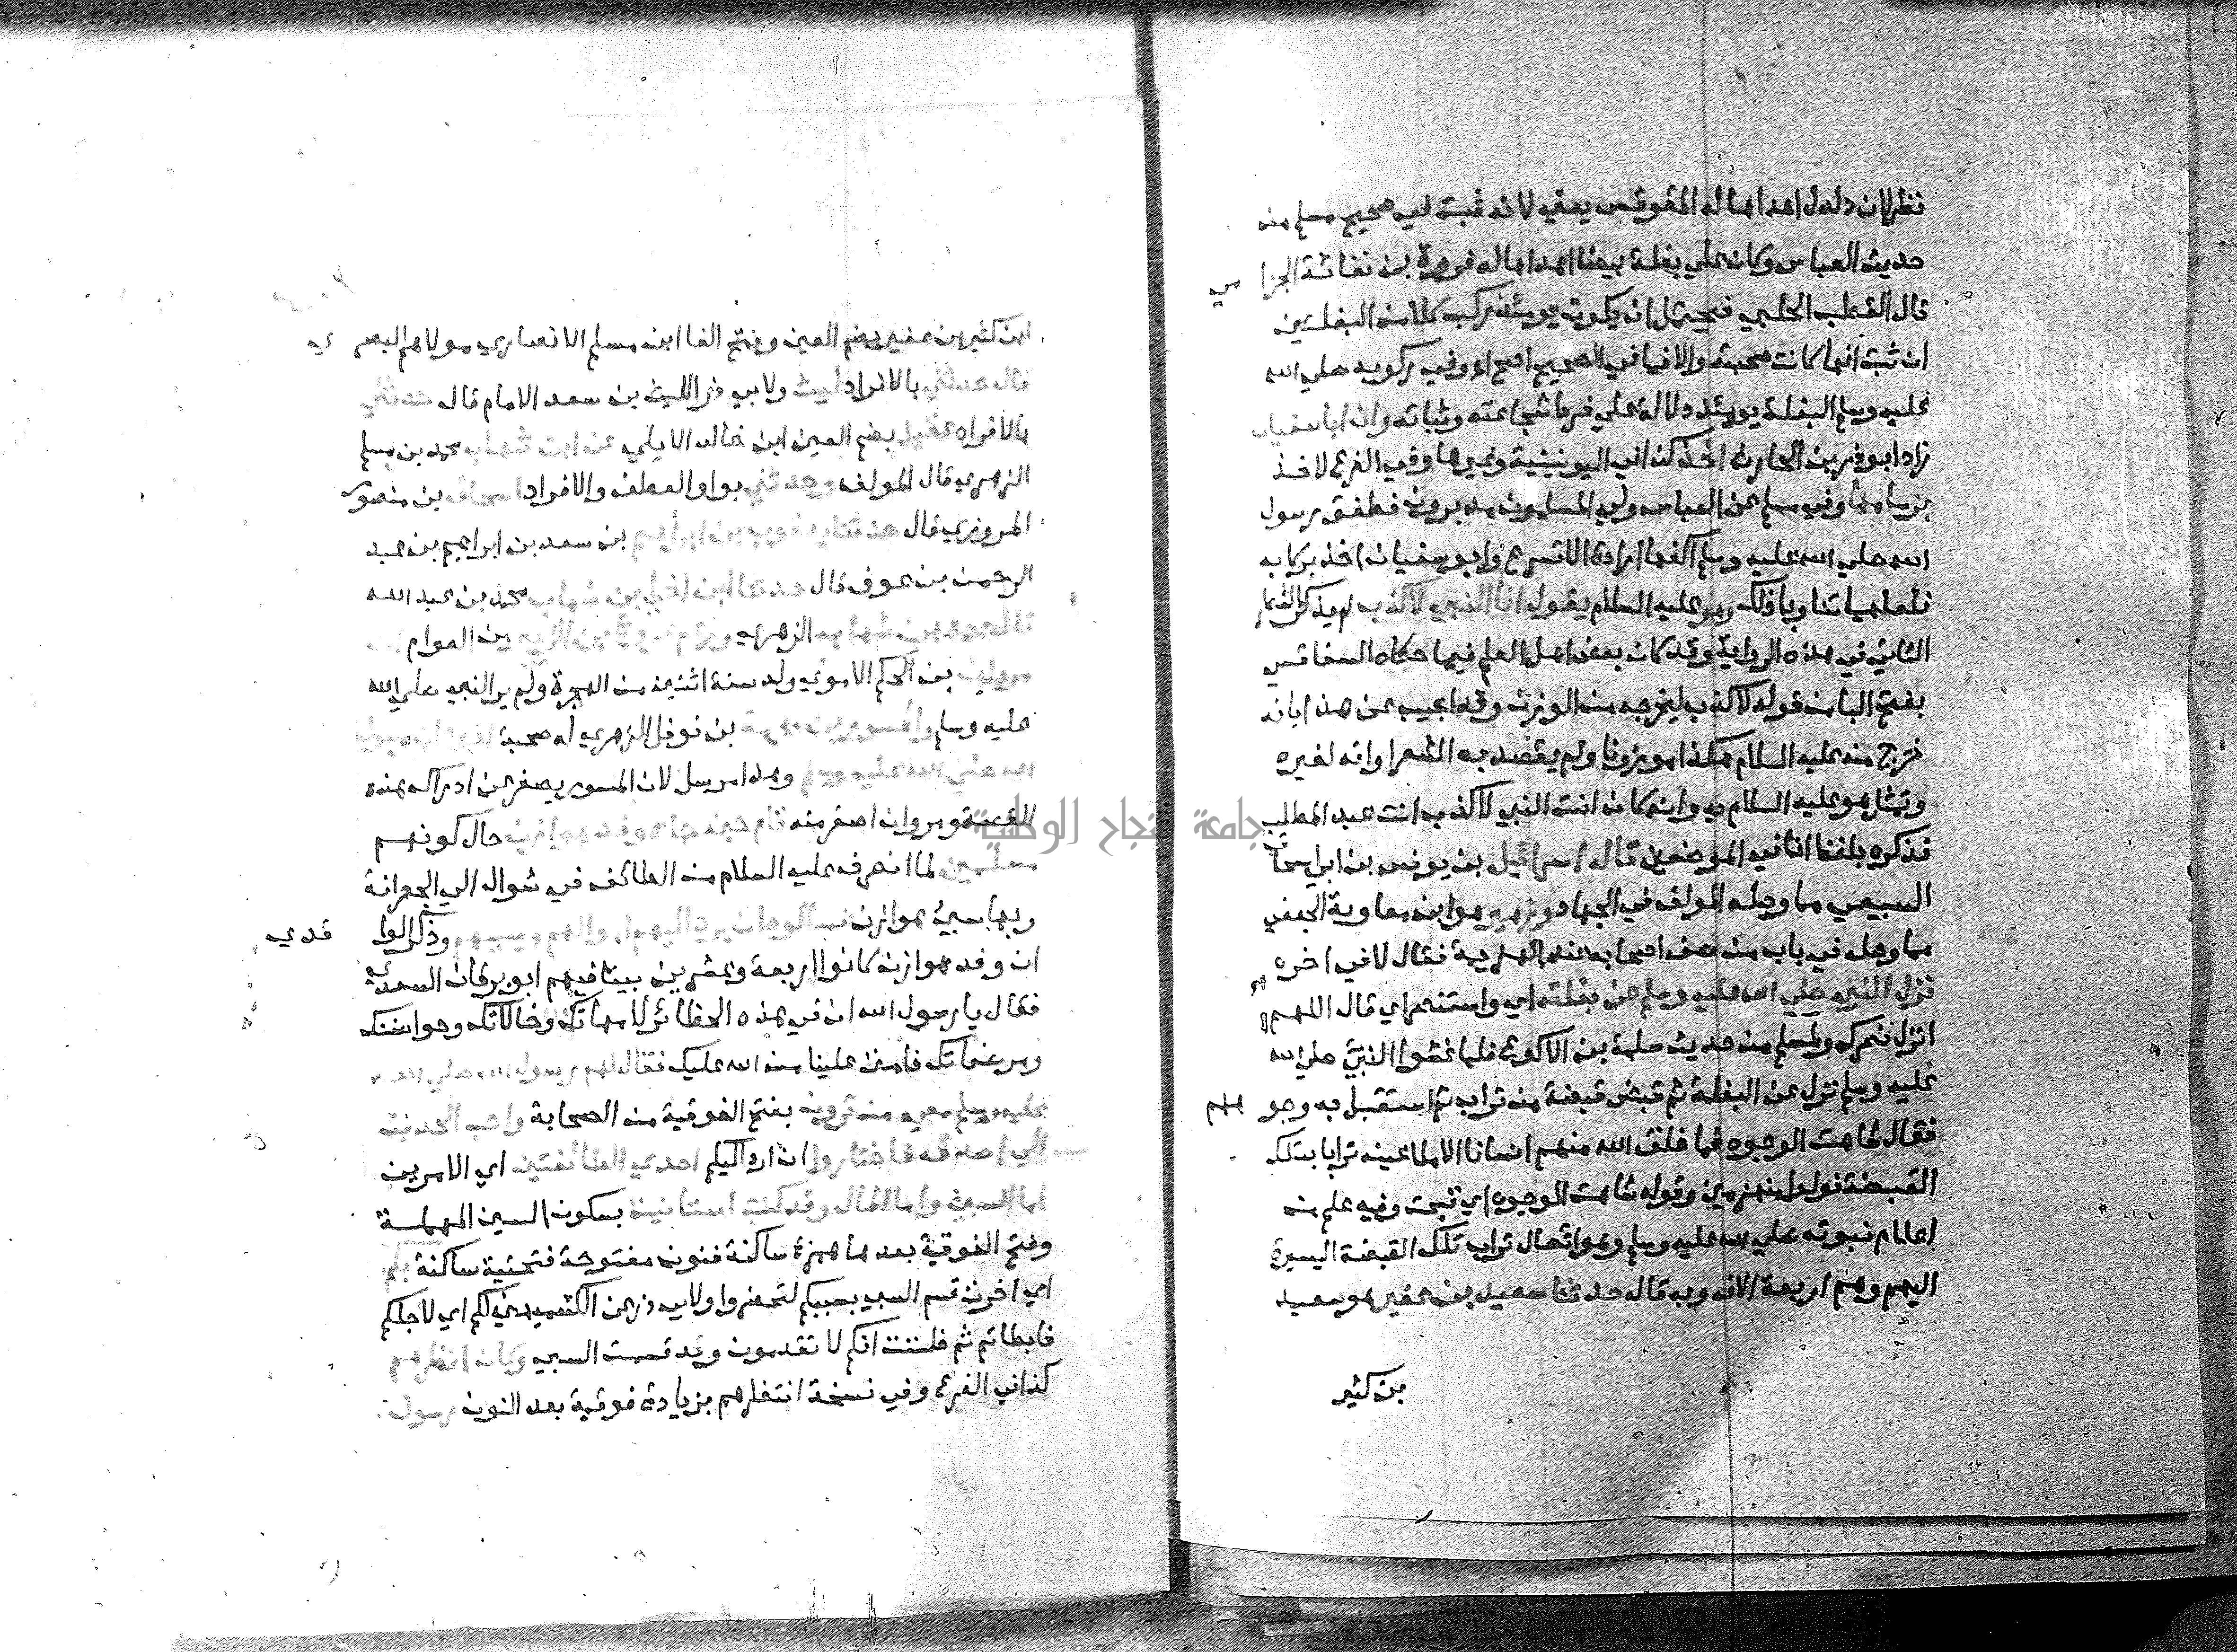 نظر لان دلدل اهداها له المقوقس يعني لانه ثبت في صحيح مسلم من
حديث العباس وكان علي بغلة بيضا اهداها له فروة بن نفاثة الجزامي
قال القطب الحلبي فيحتمل ان يكون يومئذ ركب كلا من البغلتين
ان ثبت انها كانت صحبته والا فما في الصحيح اصح وفي ركوبه صلي الله
عليه وسلم البغلة يومئذ دلالة علي فرط شجاعته وثباته وان ابا سفيان
زاد ابو ذر بن الحارث اخذ كذا في اليونينية وغيرها وفي الفرع لاخذ
بزمامها وفي مسلم عن العباس ولي المسلمون مدبرون فطفق رسول
الله صلي الله عليه وسلم اكفها ارادة الا تسرع وابو سفيان اخذ بركابه
وهو عليه السلام يقول انا النبي لا كذب لم يذكر الشطر
الثاني في هذه الرواية وقد كان بعض اهل العلم فيما حكاه السفاقسي
بفتح البا من قوله لا كذب ليخرجه من الوزن وقد اجيب عن هذا بانه
خرج منه عليه السلام هكذا موزونا ولم يقصد به الشعر او انه لغيره
وتمثل هو عليه السلام به وانه كان انت النبي لا كذب انت عبد المطلب
فذكره بلفظ انا في الموضعين قال اسرائيل بن يونس بن ابي اسحاق
السبيعي مما وصله المولف في الجهاد وزهير هو ابن معاوية الجعفي
مما وصله في باب من صف اصحابه عند الهزيمة فقال لا في اخره
نزل النبي صلي الله عليه وسلم عن بغلته اي واستنصر اي قال اللهم
انزل نصرك ولمسلم من حديث سلمة بن الاكوع فلما غشوا النبي صلي الله
عليه وسلم نزل عن البغلة ثم قبض قبضة من تراب ثم استقبل به وجوههم
فقال شاهت الوجوه فما خلق الله منهم انسانا الا ملا عينه ترابا بتلك
القبضة فولوا منهزمين وقوله شاهت الوجوه اي قبحت وفيه علم من
اعلام نبوته صلي الله عليه وسلم وهو ايصال تراب تلك القبضة اليسيرة
اليهم وهم اربعة الاف وبه قال حدثنا سعيد بن عفير هو سعيد
بن كثير
ابن كثير بن عفير بضم العين وفتح الفا ابن مسلم الانصاري مولاهم البصري
قال حدثني بالافراد ليث ولابي ذر الليث بن سعد الامام قال حدثني
بالافراد عقيل بضم العين ابن خالد الايلي عن ابن شهاب محمد بن مسلم
الزهري قال المولف وحدثني بواو العطف والافراد اسحاق بن منصور
المروزي قال حدثنا يعقوب بن ابراهيم بن سعد بن ابراهيم بن عبد
الرحمن بن عوف قال حدثنا ابن اخي ابن شهاب محمد بن عبد الله
الزهري بن العوام
بن الحكم الاموي ولد سنة اثنين من الهجرة ولم ير النبي صلي الله
عليه وسلم بن نوفل الزهري له صحبة
وهذا مرسل لان المسور يصغر عن ادراك هذه
القصة ومروان اصغر منه قام حين جاه وفد هوازن حال كونهم
مسلمين لما انصرف عليه السلام من الطائف في شوال الي الجعرانة
وبها سبي هوازن فسالوه ان يرد اليهم اموالهم وسبيهم وذكر الواقدي
ان وفد هوازن كانوا اربعة وعشرين بيتا فيهم ابو برقان السعدي
فقال يا رسول الله ان في هذه الحظائر لامهاتك وخالاتك وحواضنك
ومرضعاتك فامنن علينا من الله عليك فقال لهم رسول الله صلي الله
عليه وسلم معي من ترون بفتح الفوقية من الصحابة واحب الحديث
الي اصدقه فاختاروا ان ارد اليكم احدي الطائفتين اي الامرين
اما السبي واما المال وقد كنت استانيت بسكون السين المهملة
وفتح الفوقية بعدها همزة ساكنة فنون مفتوحة فتحتية ساكنة بكم
اي اخرت قسم السبي بسببكم لتحضروا ولابي ذر عن الكشميهني لكم اي لاجلكم
فابطاتم ثم ظننت انكم لا تقدمون وقد قسمت السبي وكان انظرهم
كذا في الفرع وفي نسخة انتظرهم بزيادة فوقية بعد النون رسول
جامعة النجاح الوطنية